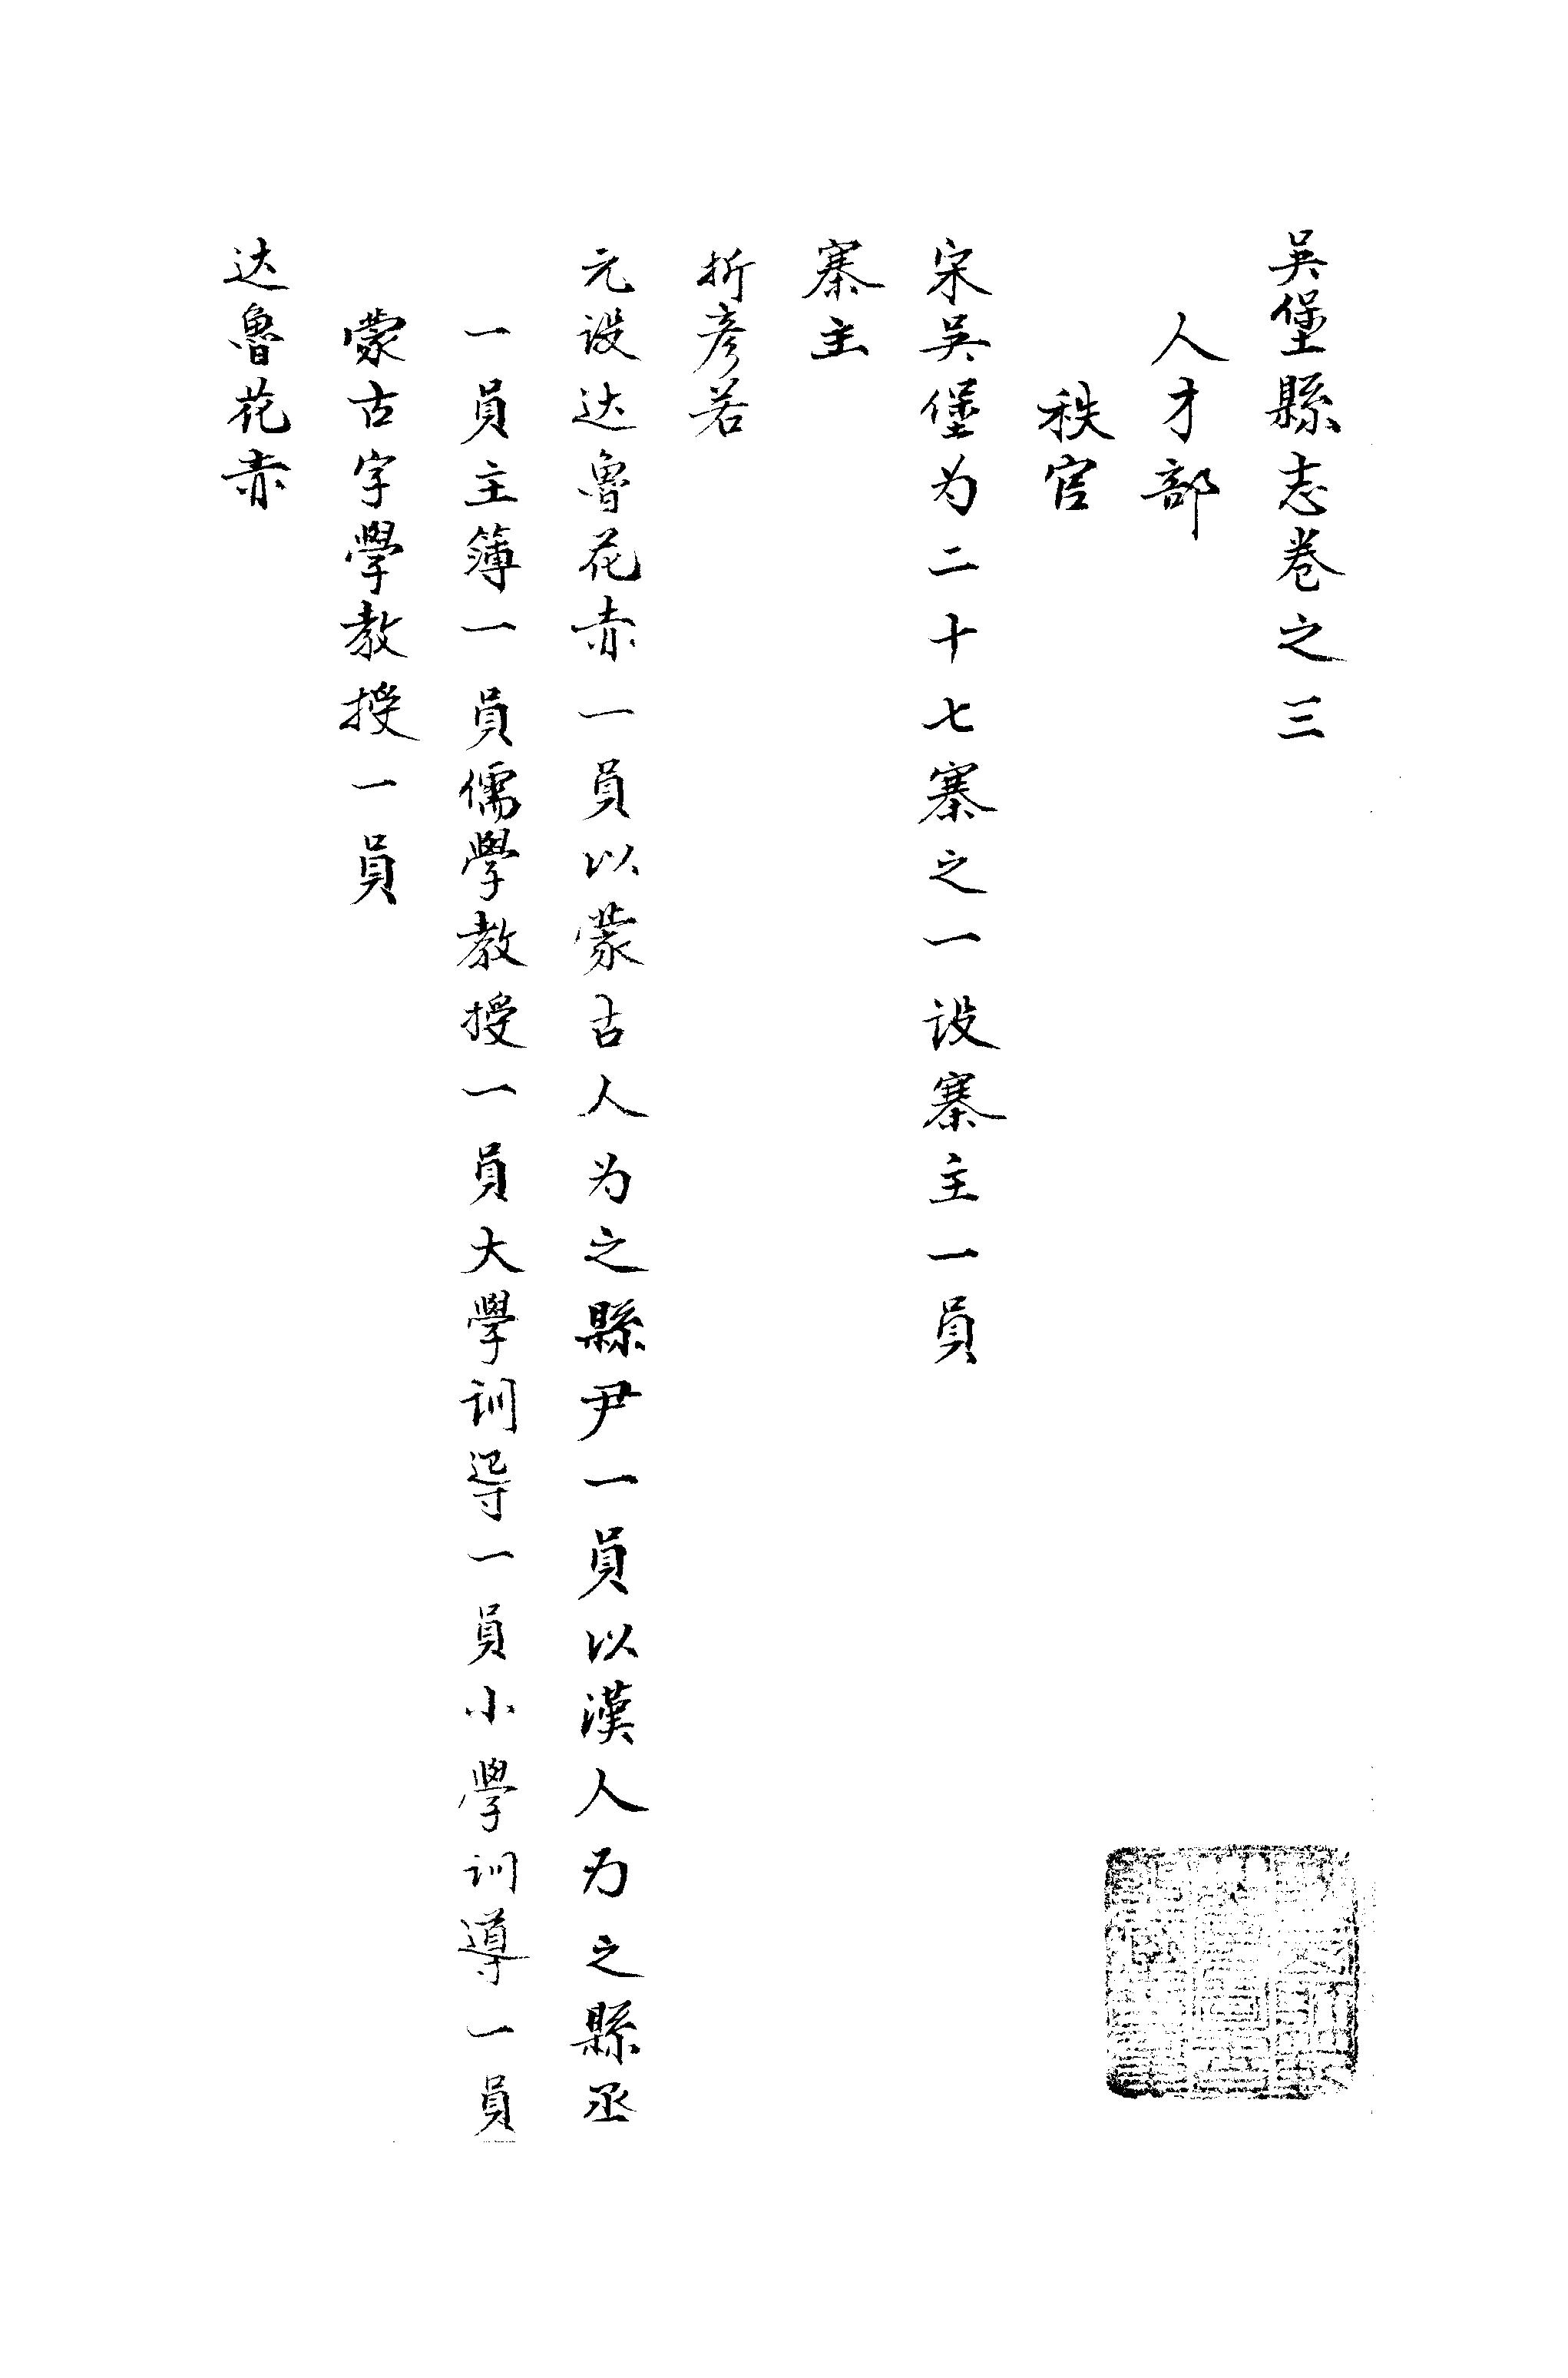 吳堡縣志卷之三
人才部
秩官
宋吳堡为二十七寨之一设寨主一員
寨主
折彦若
元设达魯花赤一員以蒙古人为之縣尹一員以漢人为之縣丞
一員主簿一員儒學教授一員大學训导一員小學训導一員
蒙古字學教授一員
达魯花赤